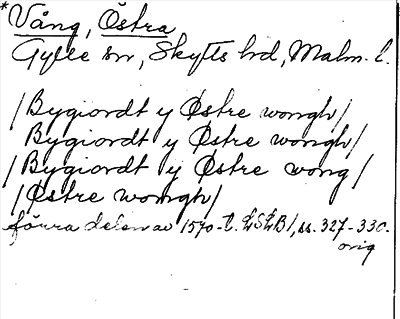 *Vång, Östra
Gylle sn, Skytts hd, Malm. l.
/Bygiordt y Østre wongh/
Bygiordt y Østre wongh/
/Bygiordt y Østre wong/
/Østre wongh/
förra delen av 1570-t. LSLB1, ss. 327-330.
orig